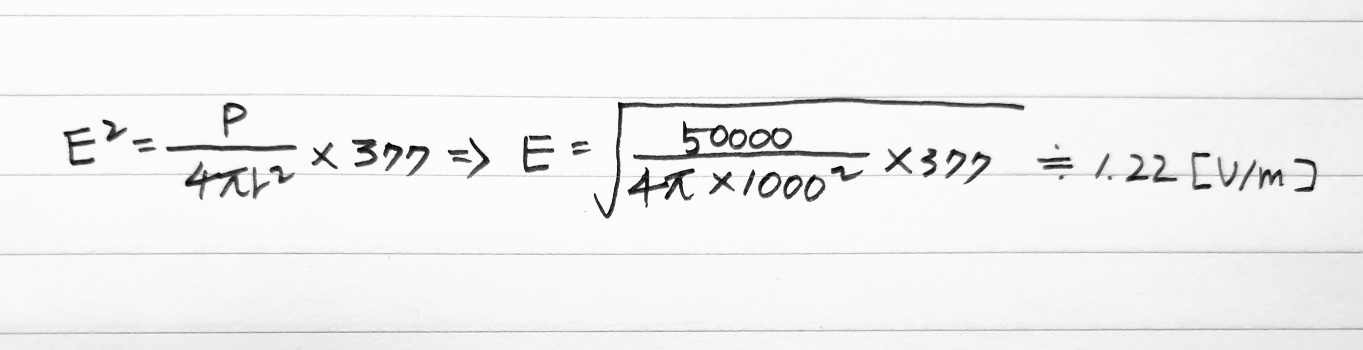 E² = P/(4πr²) × 377 ⇒ E = √(50000/(4π × 1000²) × 377) ≒ 1.22 [V/m]